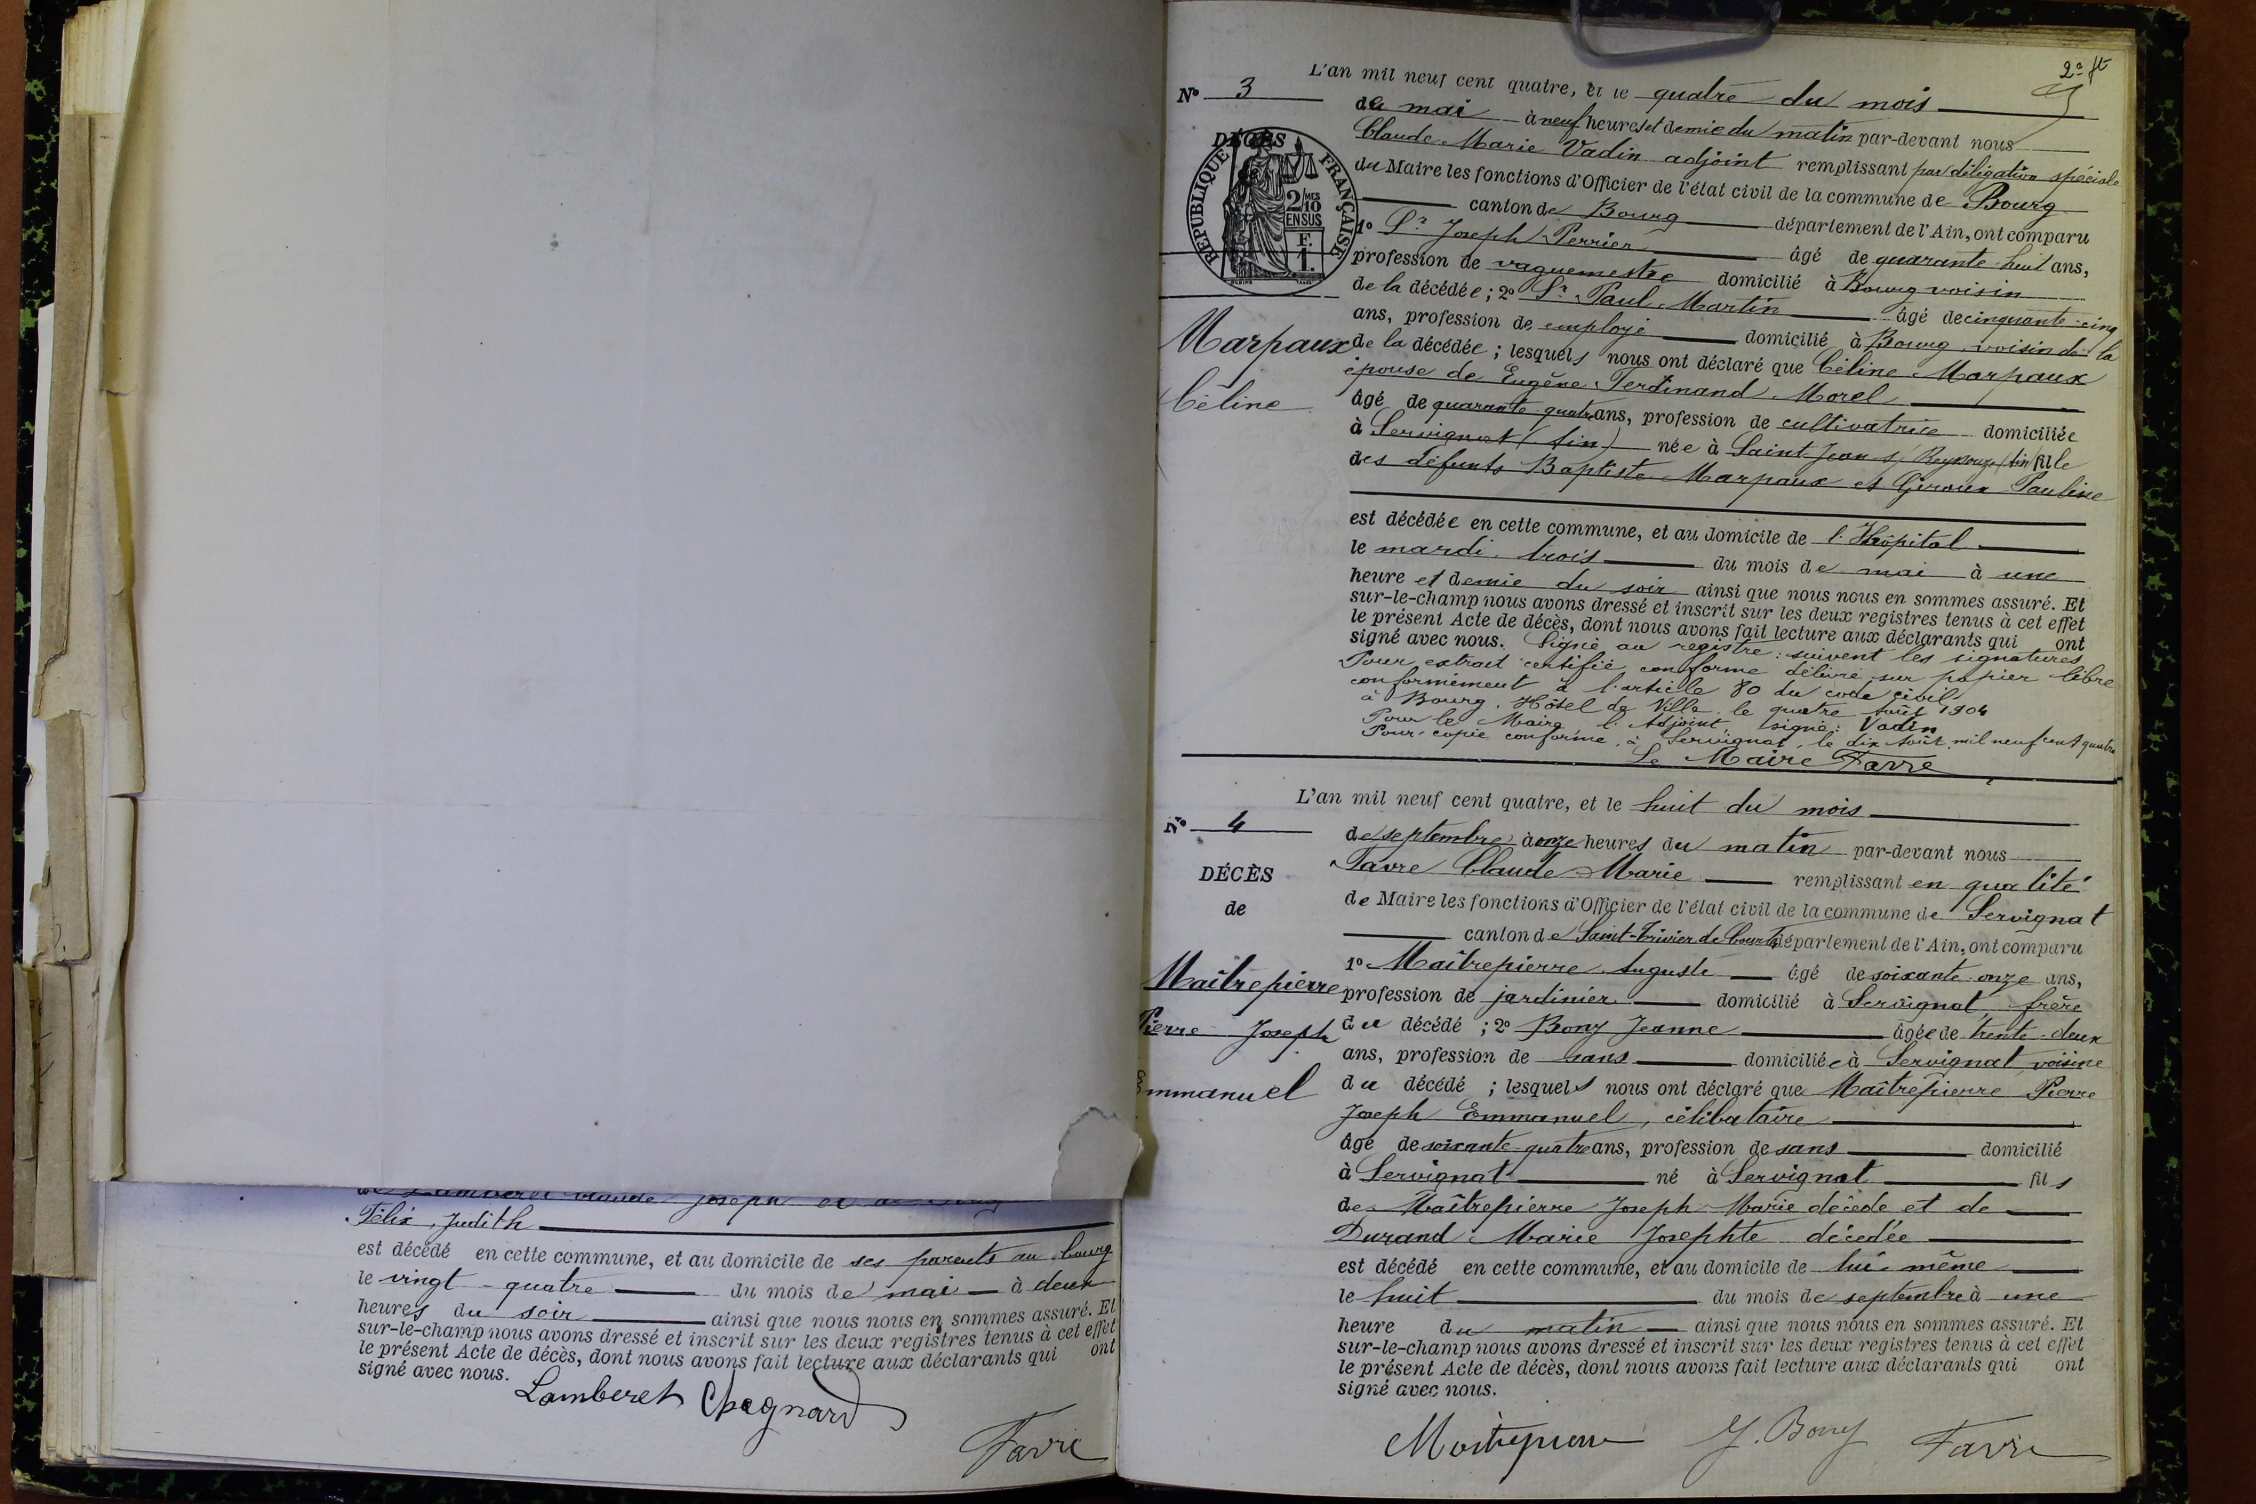 Félix, Judith
est décédé en cette commune, et au domicile de ses parents au bourg
le vingt-quatre du mois de mai à deux
heures du soir ainsi que nous nous en sommes assuré. Et
sur-le-champ nous avons dressé et inscrit sur les deux registres tenus à cet effet
le présent Acte de décès, dont nous avons fait lecture aux déclarants qui ont
signé avec nous.
Lamberet Chagnard
Favre
2e ft
L'an mil neuf cent quatre, et le quatre du mois
No 3
de mai à neuf heures et demie du matin par-devant nous
DÉCÈS
RÉPUBLIQUE FRANÇAISE
2/10 MES
EN SUS
F.
1.
Claude Marie Vadin adjoint remplissant par délégation spéciale
du Maire les fonctions d'Officier de l'état civil de la commune de Bourg
canton de Bourg département de l'Ain, ont comparu
1o Sr Joseph Perrier âgé de quarante-huit ans,
profession de vaguemestre domicilié à Bourg voisin
de la décédée; 2o Sr Paul Martin âgé de cinquante-cinq
ans, profession de employé domicilié à Bourg voisin de la
Marpaux
Céline
de la décédée; lesquels nous ont déclaré que Céline Marpaux
épouse de Eugène Ferdinand Morel
âgé de quarante quatre ans, profession de cultivatrice domiciliée
à Servignat (Ain) née à Saint Jean s/ Reyssouze (Ain) fille
des défunts Baptiste Marpaux et Giroux Pauline
est décédée en cette commune, et au domicile de l'Hôpital
le mardi trois du mois de mai à une
heure et demie du soir ainsi que nous nous en sommes assuré. Et
sur-le-champ nous avons dressé et inscrit sur les deux registres tenus à cet effet
le présent Acte de décès, dont nous avons fait lecture aux déclarants qui ont
signé avec nous. Signé au registre: suivent les signatures
Pour extrait certifié conforme délivré sur papier libre
conformément à l'article 80 du code civil
à Bourg, Hôtel de Ville, le quatre Août 1904
Pour le Maire l'Adjoint signé: Vadin
Pour copie conforme, à Servignat, le dix Août mil neuf cent quatre
Le Maire Favre
L'an mil neuf cent quatre, et le huit du mois
No 4
de septembre à onze heures du matin par-devant nous
DÉCÈS
de
Favre Claude Marie remplissant en qualité
de Maire les fonctions d'Officier de l'état civil de la commune de Servignat
canton de Saint-Trivier de Courtes département de l'Ain, ont comparu
1o Maîtrepierre Auguste âgé de soixante-onze ans,
Maîtrepierre
Pierre Joseph
Emmanuel
profession de jardinier domicilié à Servignat, frère
du décédé; 2o Bony Jeanne âgée de trente-deux
ans, profession de sans domiciliée à Servignat, voisine
du décédé; lesquels nous ont déclaré que Maîtrepierre Pierre
Joseph Emmanuel, célibataire
âgé de soixante-quatre ans, profession de sans domicilié
à Servignat né à Servignat fils
de Maîtrepierre Joseph Marie décédé et de
Durand Marie Josephte décédée
est décédé en cette commune, et au domicile de lui-même
le huit du mois de septembre à une
heure du matin ainsi que nous nous en sommes assuré. Et
sur-le-champ nous avons dressé et inscrit sur les deux registres tenus à cet effet
le présent Acte de décès, dont nous avons fait lecture aux déclarants qui ont
signé avec nous.
Maîtrepierre J. Bony Favre